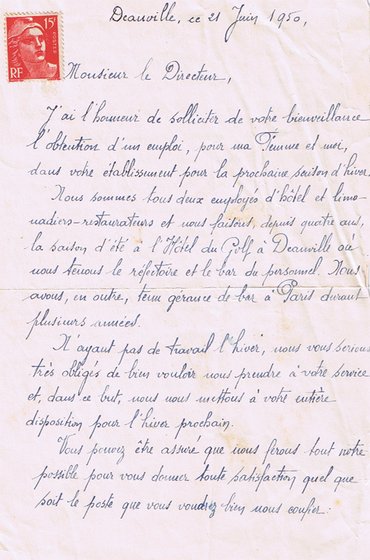 Deauville, ce 21 Juin 1950,
15F
POSTES
RF
Monsieur le Directeur,
J'ai l'honneur de solliciter de votre bienveillance
l'obtention d'un emploi, pour ma Femme et moi,
dans votre établissement pour la prochaine saison d'hiver.
Nous sommes tous deux employés d'hôtel et limo-
nadiers-restaurateurs et nous faisons, depuis quatre ans,
la saison d'été à l'Hôtel du Golf à Deauville où
nous tenons le réfectoire et le bar du personnel. Nous
avons, en outre, tenu gérance de bar à Paris durant
plusieurs années.
N'ayant pas de travail l'hiver, nous vous serions
très obligés de bien vouloir nous prendre à votre service
et, dans ce but, nous nous mettons à votre entière
disposition pour l'hiver prochain.
Vous pouvez être assuré que nous ferons tout notre
possible pour vous donner toute satisfaction quel que
soit le poste que vous voudrez bien nous confier.